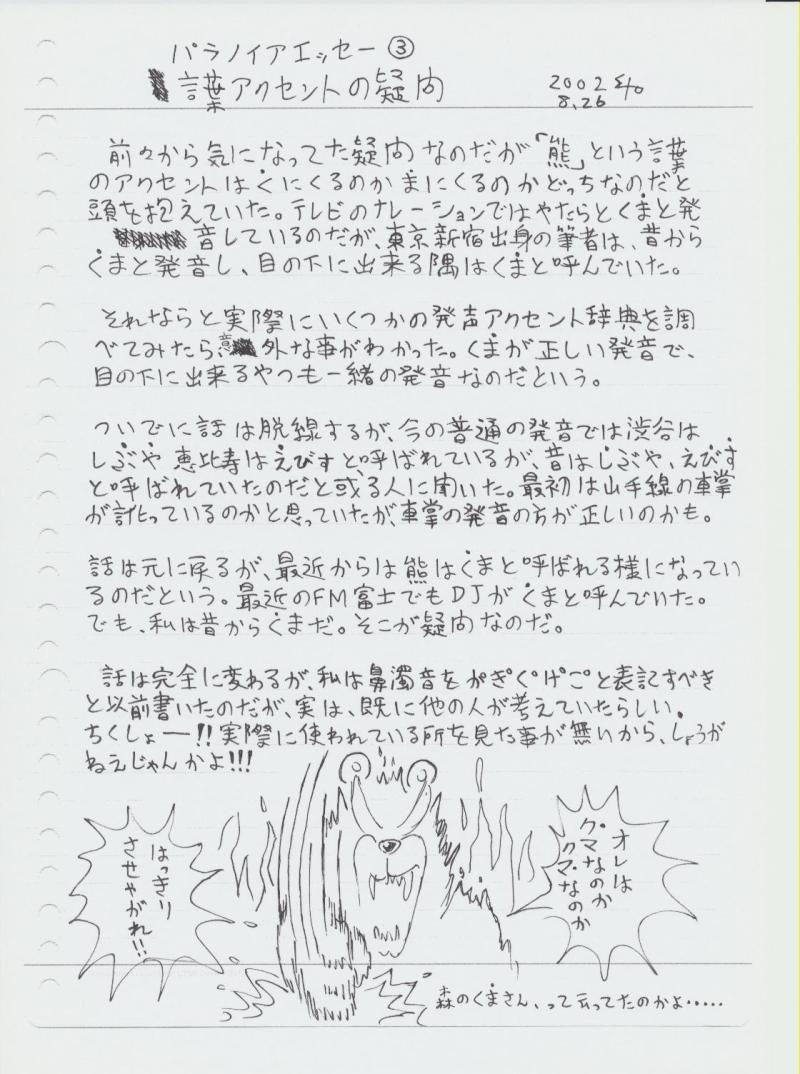 パラノイアエッセー③
言葉アクセントの疑問
2002
8.26
前々から気になってた疑問なのだが「熊」という言葉
のアクセントはくにくるのかまにくるのかどっちなのだと
頭を抱えていた。テレビのナレーションではやたらとくまと発
音しているのだが、東京新宿出身の筆者は、昔から
くまと発音し、目の下に出来る隅はくまと呼んでいた。
それならと実際にいくつかの発声アクセント辞典を調
べてみたら、意外な事がわかった。くまが正しい発音で、
目の下に出来るやつも一緒の発音なのだという。
ついでに話は脱線するが、今の普通の発音では渋谷は
しぶや 恵比寿はえびすと呼ばれているが、昔はしぶや、えびす
と呼ばれていたのだと或る人に聞いた。最初は山手線の車掌
が訛っているのかと思っていたが、車掌の発音の方が正しいのかも。
話は元に戻るが、最近からは熊はくまと呼ばれる様になってい
るのだという。最近のFM富士でもDJがくまと呼んでいた。
でも、私は昔からくまだ。そこが疑問なのだ。
話は完全に変わるが、私は鼻濁音をか゜き゜く゜け゜こ゜と表記すべき
と以前書いたのだが、実は、既に他の人が考えていたらしい。
ちくしょー!!実際に使われている所を見た事が無いから、しょうが
ねえじゃんかよ!!!
オレは
クマなのか
クマなのか
はっきり
させやがれ!!
森のくまさん、って云ってたのかよ・・・・・